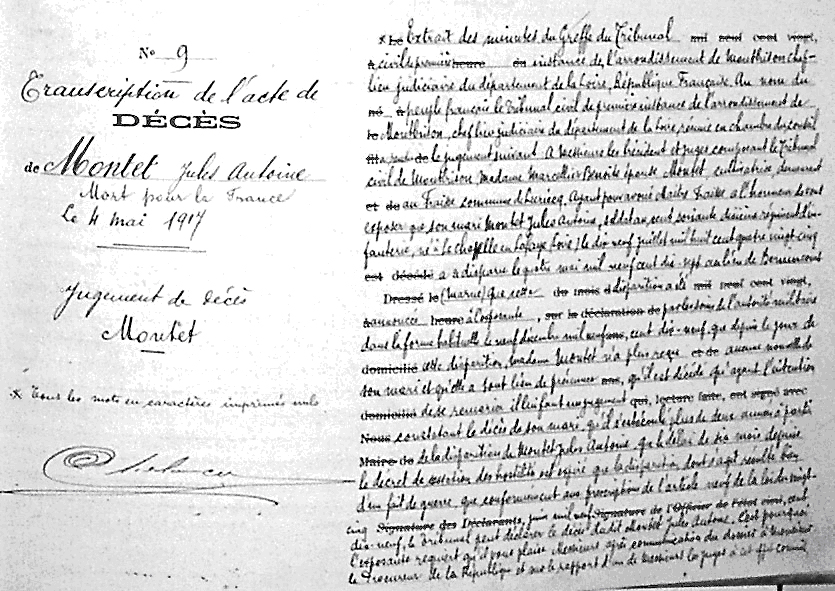 N° 9
Transcription de l'acte de
DÉCÈS
de Montet Jules Antoine
Mort pour la France
Le 4 mai 1917
Jugement de décès
Montet
* Tous les mots en caractères imprimés nuls
* Le Extrait des minutes du Greffe du Tribunal mil neuf cent vingt,
à civil première heure du instance de l'arrondissement de Montbrison chef-
lieu judiciaire du département de la Loire, République Française. Au nom du
né à peuple français le Tribunal civil de première instance de l'arrondissement de
le Montbrison, chef lieu judiciaire du département de la Loire, réunie en chambre du conseil
fils a rendu de le jugement suivant. A Messieurs les Président et Juges composant le Tribunal
civil de Montbrison, Madame Marcellin Benoite épouse Montet, cultivatrice, demeurant
et de au Fraisse commune d'Usson, Ayant pour avoué Maître a l'honneur de vous
exposer que son mari Montet Jules Antoine, soldat au cent soixante dixième régiment d'in-
fanterie, né à La Chapelle en Lafaye (Loire) le dix neuf juillet mil huit cent quatre vingt-cinq
est décédé a disparu le quatre mai mil neuf cent dix-sept au lieu de
Dressé le (Marne) Que cette du mois d disparition a été mil neuf cent vingt,
à annoncée heure à l'exposante, sur la déclaration de par les soins de l'autorité militaire
dans la forme habituelle le neuf décembre mil neuf cent dix-neuf, que depuis le jour de
domicilié cette disparition, madame Montet n'a plus reçu et de aucune nouvelle de
son mari et qu'elle a tout lieu de présumer qu'il est décédé qu'ayant l'intention
domicilié de se remarier il lui faut un jugement qui, lecture faite, ont signé avec
Nous constatant le décès de son mari, qu'il s'est écoulé plus de deux années à partir
Maire de de la disparition de Montet Jules Antoine, que le délai de six mois depuis
le décret de cessation des hostilités est expiré que la disparition dont s'agit résulte bien
d'un fait de guerre, que conformément aux prescriptions de l'article neuf de la loi du vingt-
cinq Signature des Déclarants, juin mil neuf Signature de l'Officier de l'état civil, cent
dix-neuf, le Tribunal peut déclarer le décès du dit Montet Jules Antoine. C'est pourquoi
l'exposante requiert qu'il vous plaise Messieurs après communication du dossier à Monsieur
le Procureur de la République et sur le rapport d'un de Messieurs les juges à cet effet commis